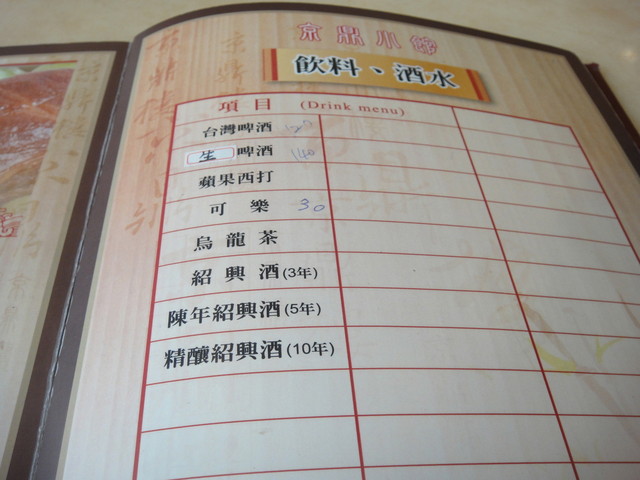 京鼎小館
飲料、酒水
項目 (Drink menu)
台灣啤酒
生啤酒 140
蘋果西打
可樂 30
烏龍茶
紹興酒(3年)
陳年紹興酒(5年)
精釀紹興酒(10年)